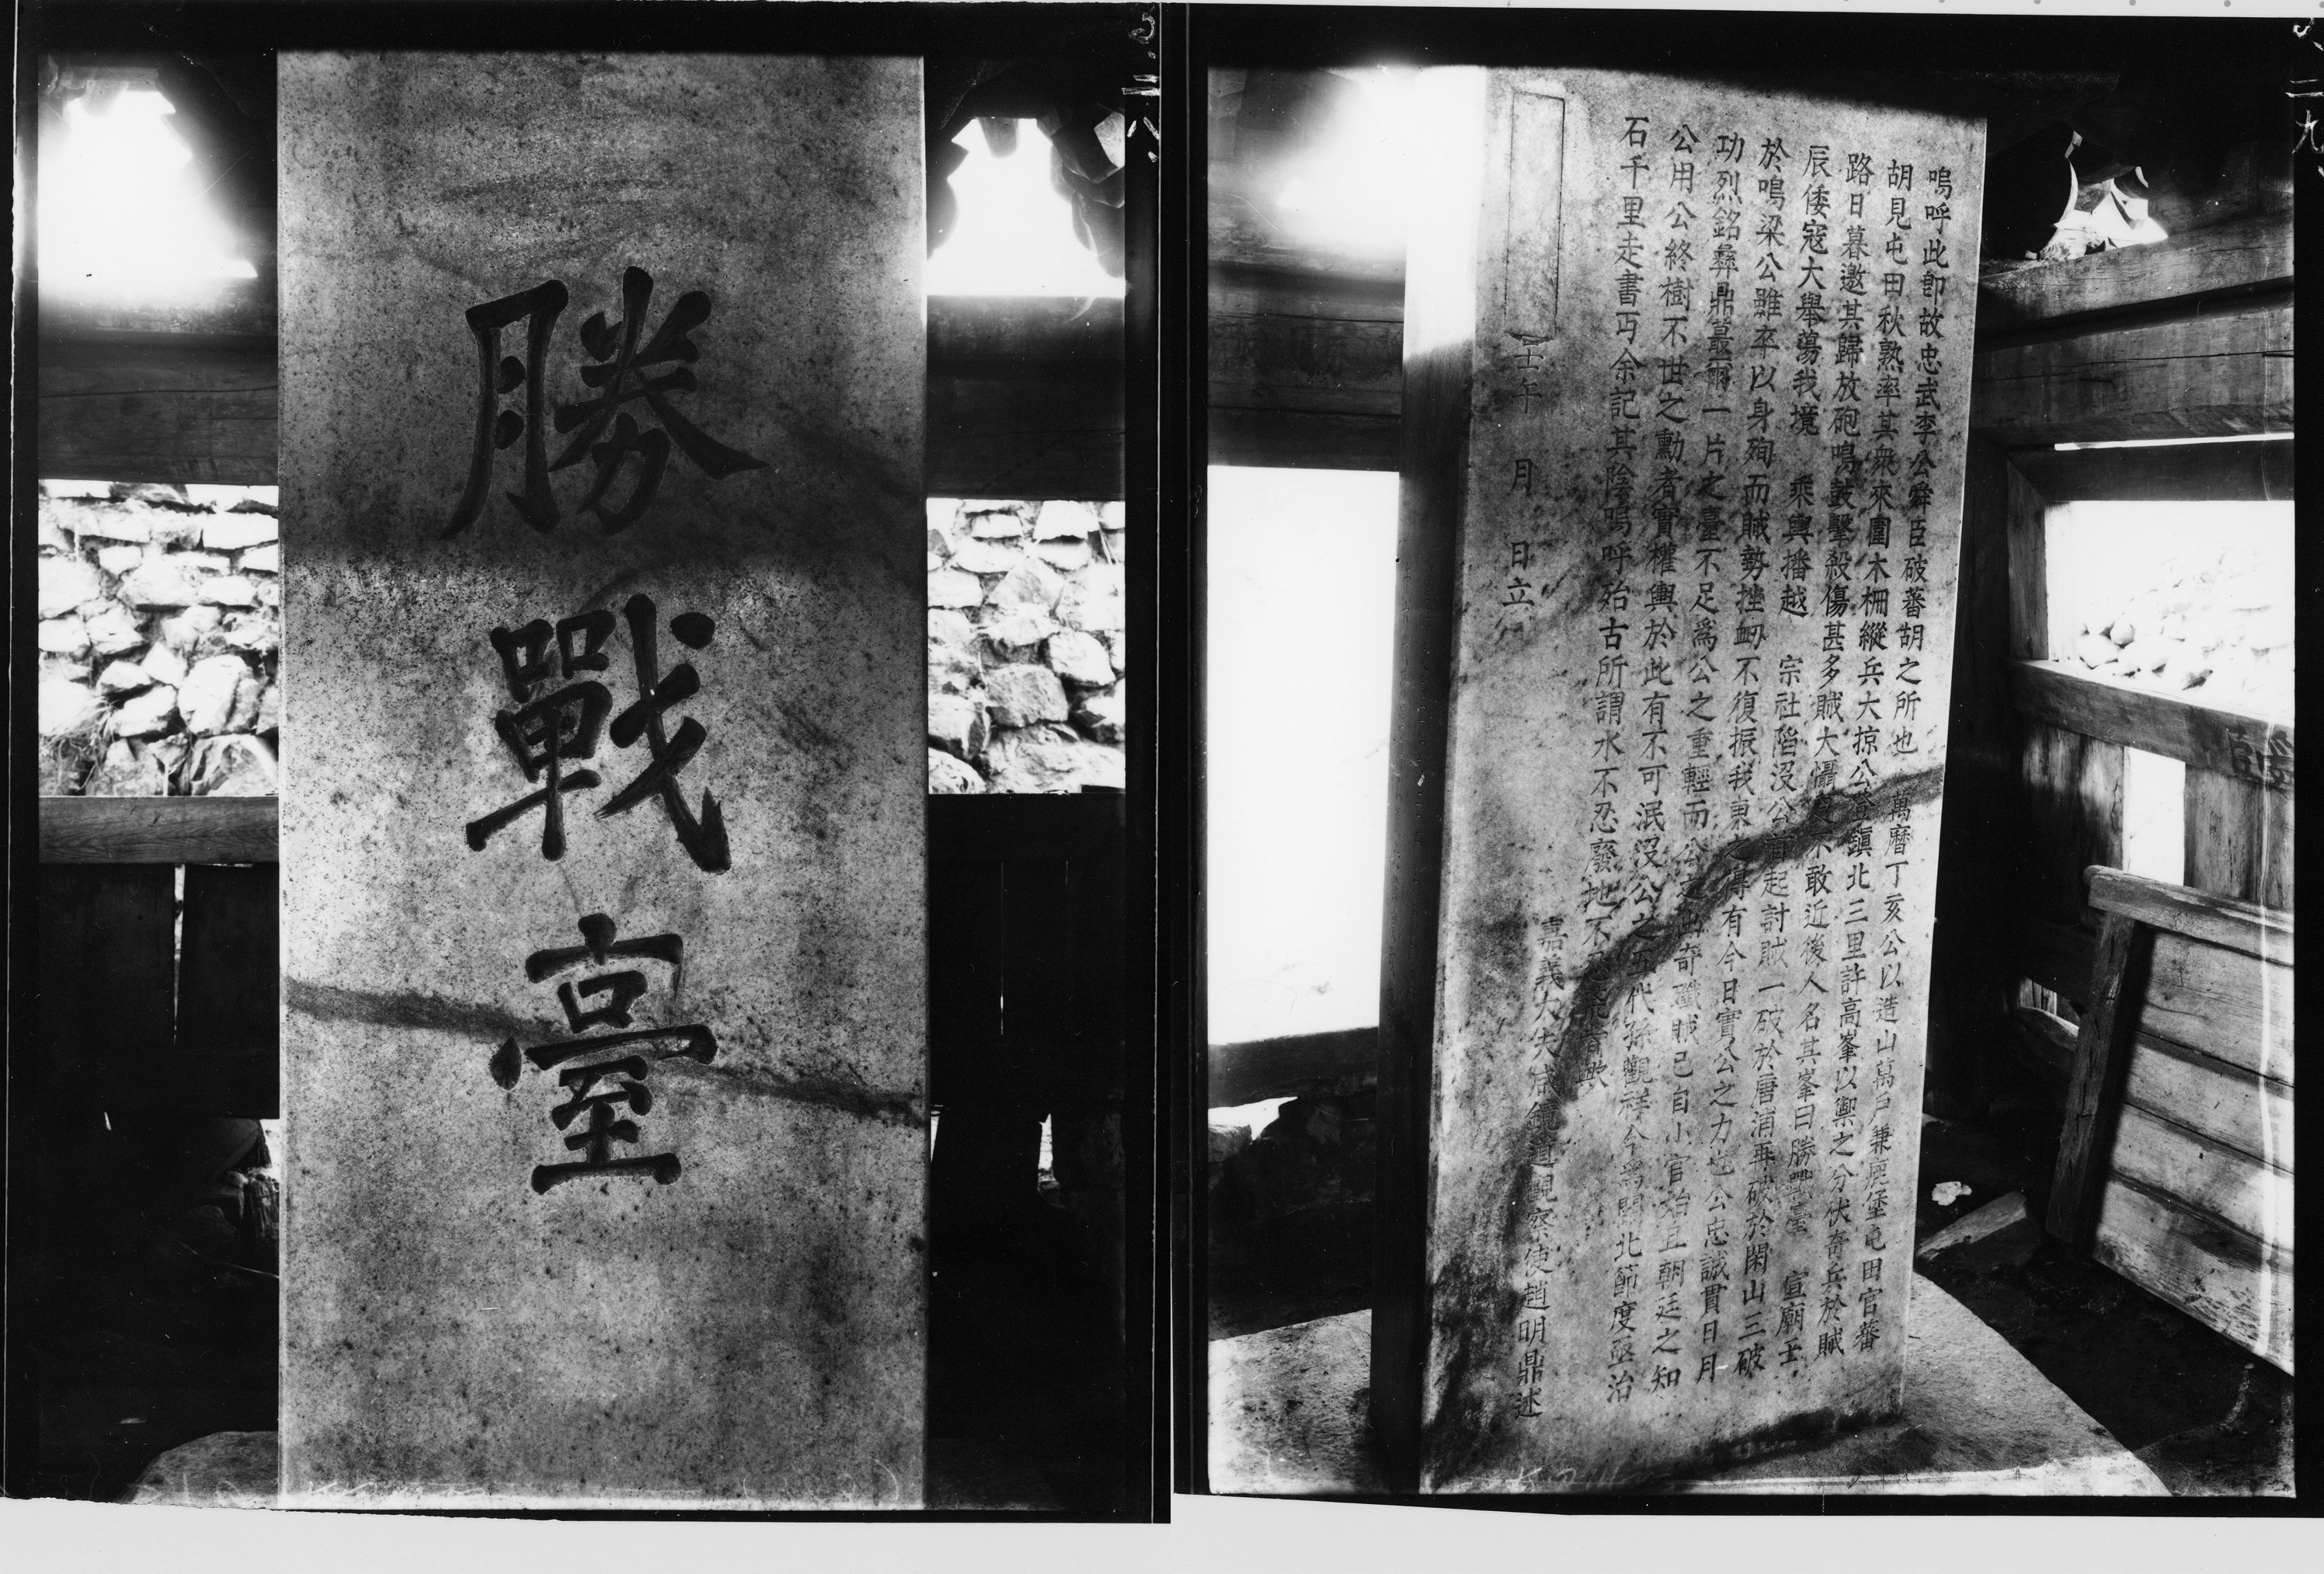 勝戰臺
嗚呼此卽故忠武李公舜臣破蕃胡之所也 萬曆丁亥公以造山萬戶兼鹿堡屯田官蕃
胡見屯田秋熟率其衆來圍木柵縱兵大掠公登鎭北三里許高峯以禦之分伏奇兵於賊
路日暮邀其歸放砲鳴鼓擊殺傷甚多賊大懾 不敢近後人名其峯曰勝戰臺 宣廟壬
辰倭寇大擧蕩我境 乘輿播越 宗社陷沒公 起討賊一破於唐浦再破於閑山三破
於鳴梁公雖卒以身殉而賊勢挫衂不復振我東之得有今日實公之力也公忠誠貫日月
功烈銘彝鼎蕞爾一片之臺不足爲公之重輕而公之出奇殲賊已自小官始且朝廷之知
公用公終樹不世之勳者實權輿於此有不可泯沒公之五代孫觀祥今爲關北節度亟治
石千里走書丏余記其陰嗚呼殆古所謂水不忍廢地不忍荒者歟
嘉義大夫咸鏡道觀察使趙明鼎述
壬午 月 日立
二八
二九